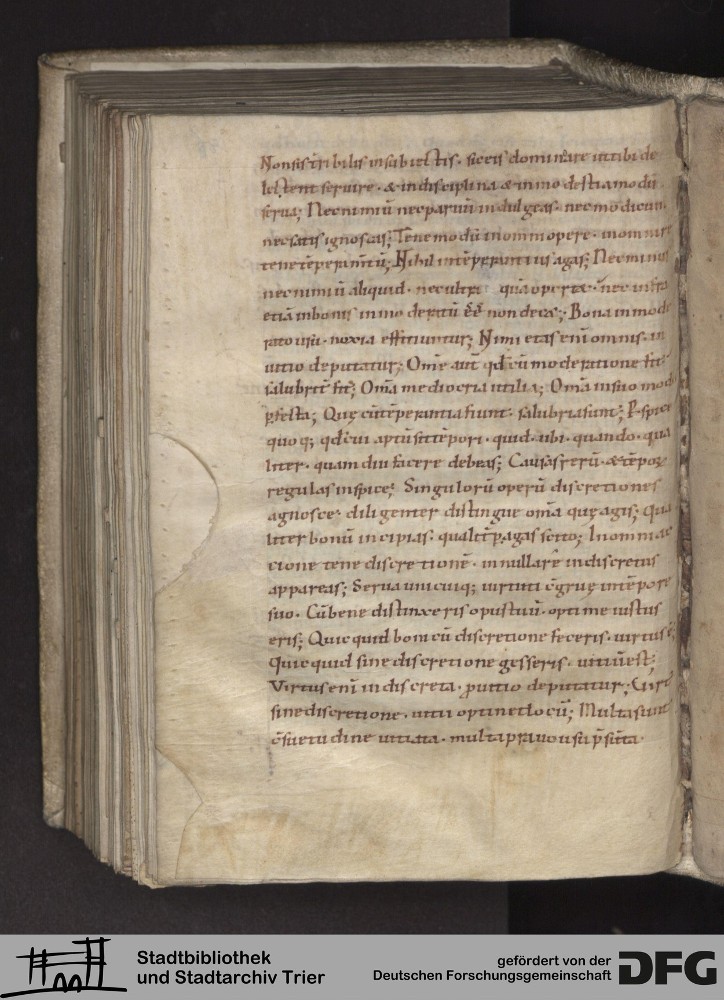 Non sis tribilis in subiectis. sic eis dominare ut tibi de
lectent seruire. & in disciplina & in modestia modū
serua; Nec nimiū nec parum indulgeas. nec modicum
nec satis ignoscas; Tene modū in omni opere. in omni re
tene tēperam̄tū; Nihil intēperantius agas; Nec minus
nec nimiū aliquid. nec ultra quā oportet. nec infra
etiā in bonis inmoderatū ēē non decet; Bona inmode
rato usu. noxia efficiuntur; Nimietas enī omnis. in
uitio deputatur; Om̄e aut̄ qd̄ cū moderatione fit
salubrit̄ fit; Om̄a mediocria utilia; Om̄a in suo modo
p̄fecta; Quę cū tēperantia fiunt. salubria sunt; P̱spice
quoq; qd̄ cui aptū sit tēpori. quid. ubi. quando. qua
liter. quam diu facere debeas; Causas rerū. & tēpoꝝ
regulas inspice; Singulorū operū discretiones
agnosce. diligenter distingue om̄a quę agis; Qua
liter bonū incipias. qualit̄ p̱agas scito; In omni ac
tione tene discretionē. in nulla rē indiscretus
appareas; Serua unicuiq; uirtuti c̄gruę in tēpore
suo. Cū bene distinxeris opus tuū. optime iustus
eris; Quicquid boni cū discretione feceris. uirtus ē;
Quicquid sine discretione gesseris. uitiū est;
Virtus enī indiscreta. p̱ uitio deputatur; Virt
sine discretione. uitii optinet locū; Multa sunt
c̄suetudine uitiata. multa prauo usu p̄sūta.
Stadtbibliothek
und Stadtarchiv Trier
gefördert von der
Deutschen Forschungsgemeinschaft
DFG